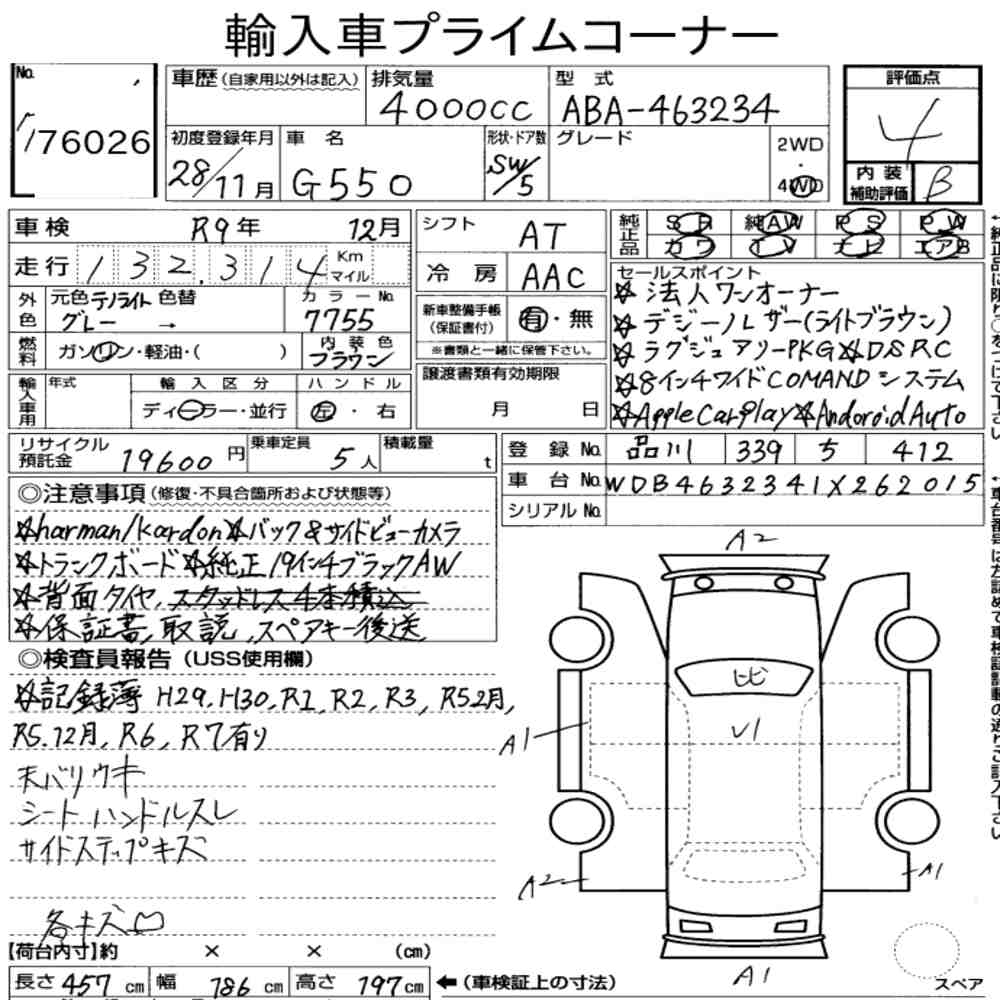 輸入車プライムコーナー
No.
76026
車歴(自家用以外は記入)
排気量
4000cc
型式
ABA-463234
評価点
4
初度登録年月
28/11月
車名
G550
形状・ドア数
SW/5
グレード
2WD
・
4WD
内装
補助評価
B
車検 R9年 12月
走行 132,314 Km マイル
シフト AT
冷房 AAC
純正品
SR 純AW PS PW
カワ TV ナビ エアB
外色
元色 テノライト 色替
グレー →
カラーNo.
7755
燃料
ガソリン・軽油・( )
内装色
ブラウン
新車整備手帳
(保証書付)
有・無
※書類と一緒に保管下さい。
輸入車用
年式
輸入区分
ディーラー・並行
ハンドル
左・右
譲渡書類有効期限
月 日
セールスポイント
☆法人ワンオーナー
☆デジーノレザー(ライトブラウン)
☆ラグジュアリーPKG☆DSRC
☆8インチワイドCOMANDシステム
☆Apple Carplay☆Andoroid Auto
リサイクル
預託金
19600円
乗車定員
5人
積載量
t
登録No. 品川 339 5 412
車台No. WDB4632341X262015
シリアルNo.
◎注意事項(修復・不具合箇所および状態等)
☆harman/kardon☆バック&サイドビューカメラ
☆トランクボード☆純正19インチブラックAW
☆背面タイヤ、スタッドレス4本積込
☆保証書、取説、スペアキー後送
◎検査員報告(USS使用欄)
☆記録簿 H29, H30, R1, R2, R3, R5.2月,
R5.12月, R6, R7有り
天バリウキ
シート ハンドルスレ
サイドステップキズ
各キズ凹
A2
ヒビ
A1
A2
A1
A1
【荷台内寸】約 × × (cm)
長さ 457 cm 幅 186 cm 高さ 197 cm
←(車検証上の寸法)
スペア